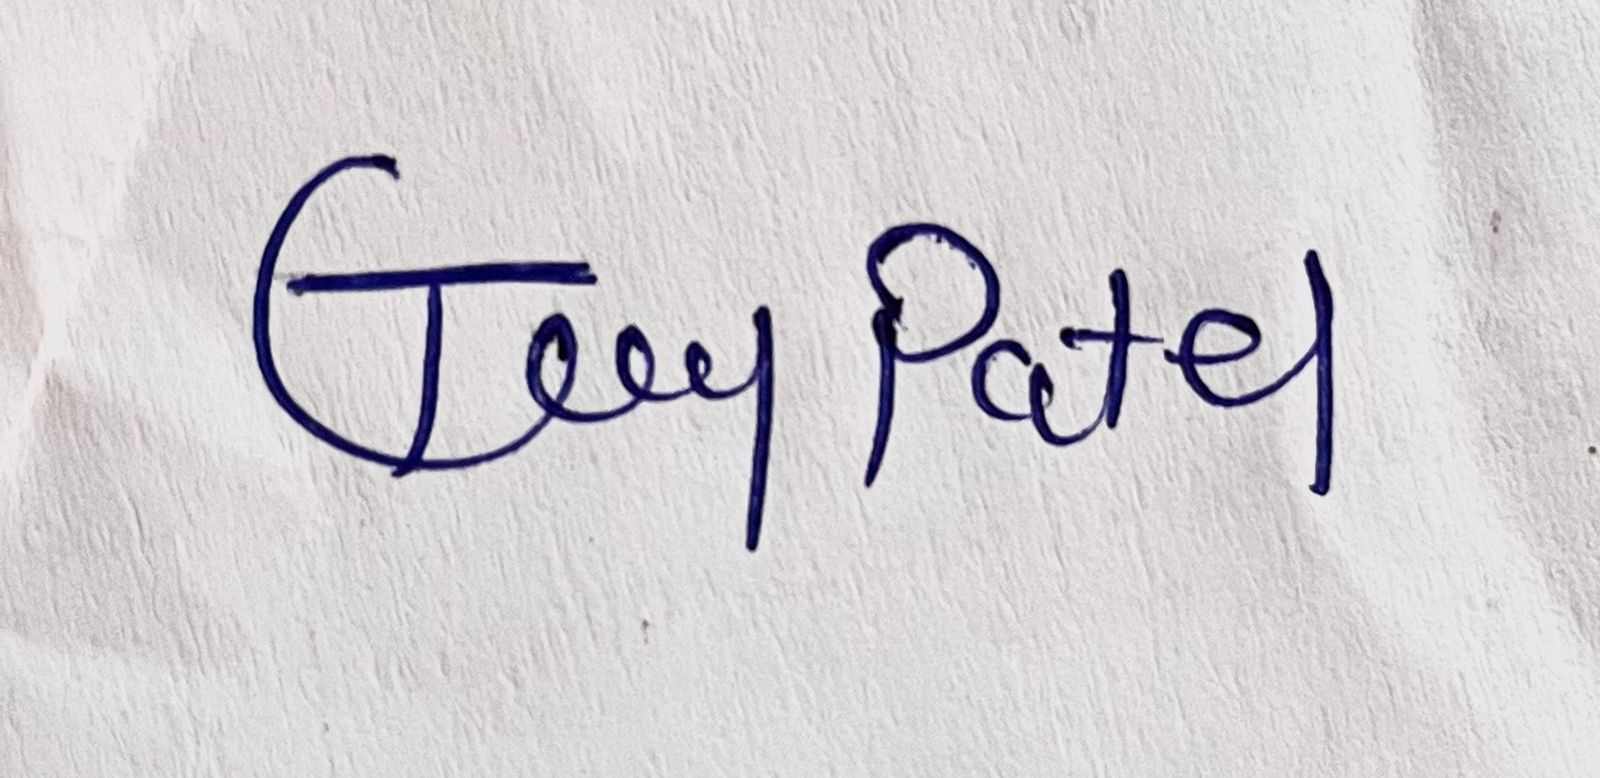 Jeey Patel